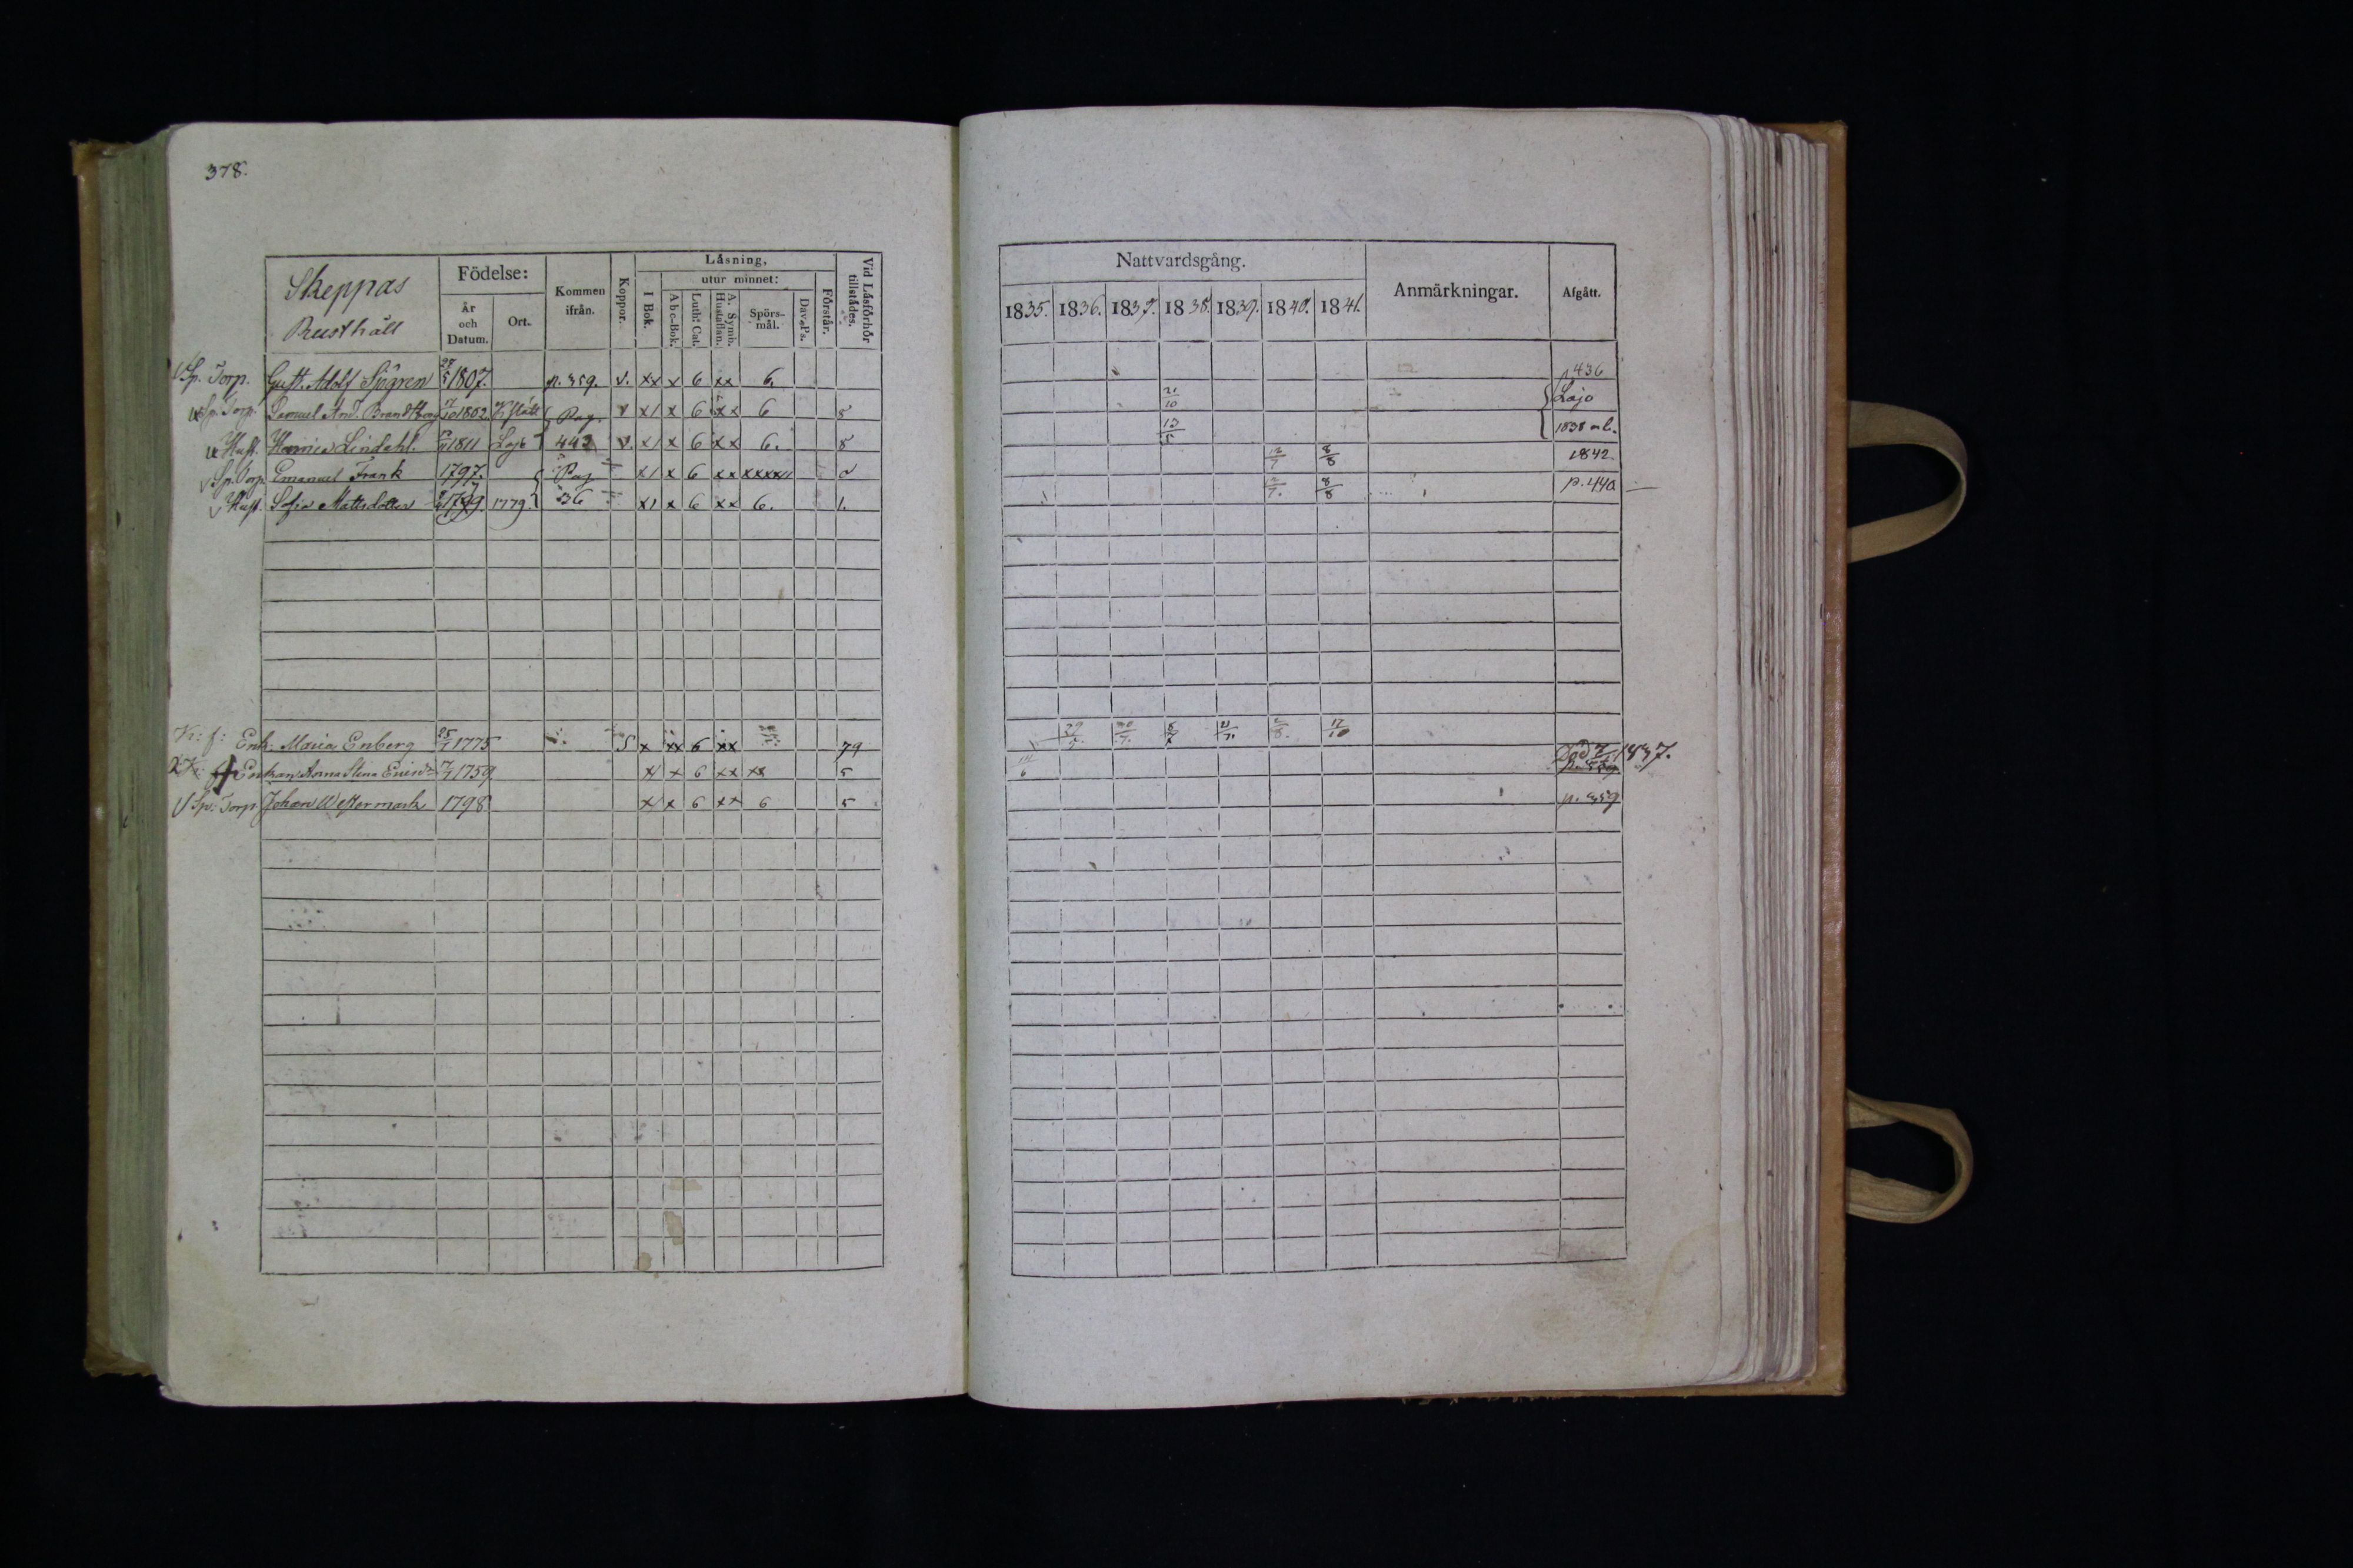 378.
Skeppas
Rusthåll
Födelse:
År
och
Datum.
Ort.
Kommen
ifrån.
Koppor.
Läsning,
utur minnet:
I Bok.
Abc-Bok.
Luth: Cat.
A. Symb.
Hustaflan.
Spörs-
mål.
Dav. Ps.
Förstår.
Vid Läsförhör
tillstädes.
Sp. Torp. Gust. Adolf Sjögren 27/5 1807. p. 359. v. xx x 6 xx 6.
Sp. Torp. Samuel And. Brandtberg 17/10 1802 Pag. v x1 x 6 xx 6 8
Hust. Lindahl. 1811 Lojo 442 v. x1 x 6 xx 6. 8
Sp. Torp. Emanuel Frank 1797. Pag x1 x 6 xx xxxx
Hust. Sofia Mattsdotter 1779. 36 x1 x 6 xx 6. 1.
Enk. Maria Enberg 25/7 1775 S x xx 6 xx 79
Enkan Anna Stina 1759 x1 x 6 xx xx 5
Sp: Torp. Johan Westermark 1798 x1 x 6 xx 6 5
Nattvardsgång.
Anmärkningar.
Afgått.
1835. 1836. 1837. 1838. 1839. 1840. 1841.
p 436
21/10 Lojo
13/5 1838
12/7 8/8 1842
12/7. 8/8 p. 440
8/7 12/10
Död 1837.
p. 359